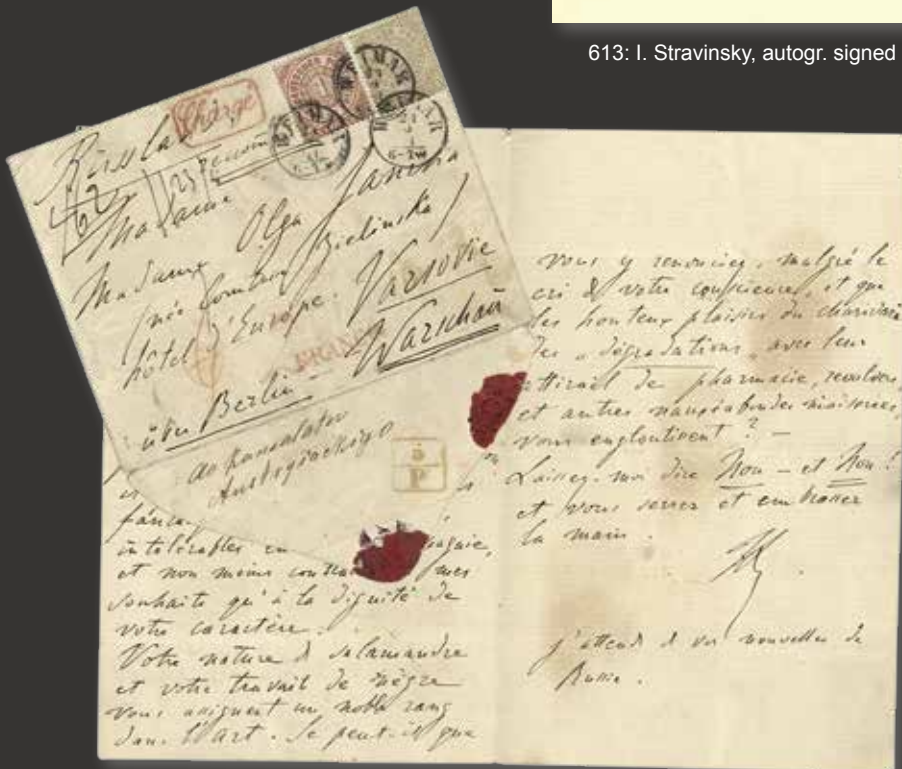 613: I. Stravinsky, autogr. signed
Chargé
Russland
Madame
Madame Olga Janina
(née Comtesse Zielinska)
hôtel d'Europe. Varsovie
über Berlin – Warschau
FRANCO
WEIMAR
WEIMAR
5-6
P
intolérables en
et non moins mes
souhaits qu'à la dignité de
votre caractère.
Votre nature d salamandre
et votre travail de nègre
vous assignent un noble rang
dans l'art. Se peut-il que
vous y renonciez, malgré le
cri d votre conscience, et que
les honteux plaisirs du charivari
des „dégradations„ avec leur
attirail de pharmacie, revolvers,
et autres nauséabondes niaiseries,
vous engloutissent ? –
Laissez-moi dire Non – et Non !
et vous serrer et embrasser
la main.
j'attends d vos nouvelles de
Russie.